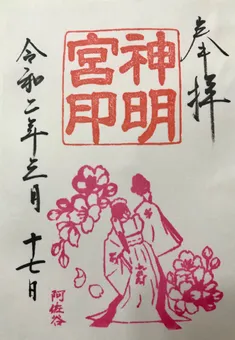 奉拝
神明
宮印
令和二年三月 十七日
阿佐谷